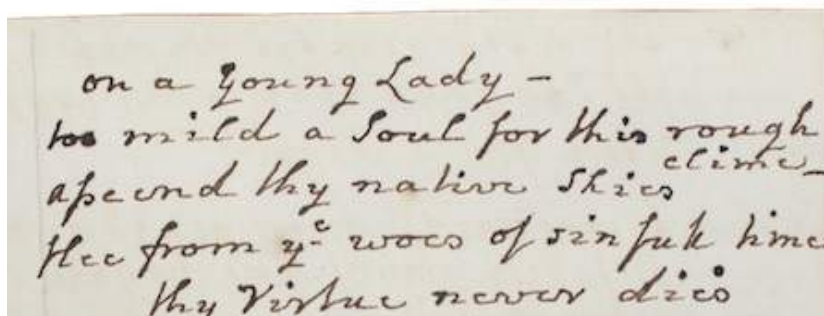 on a young Lady -
too mild a Soul for this rough
clime -
assend thy native Skies
flee from yᵉ woes of sinfull time
thy Virtue never dies